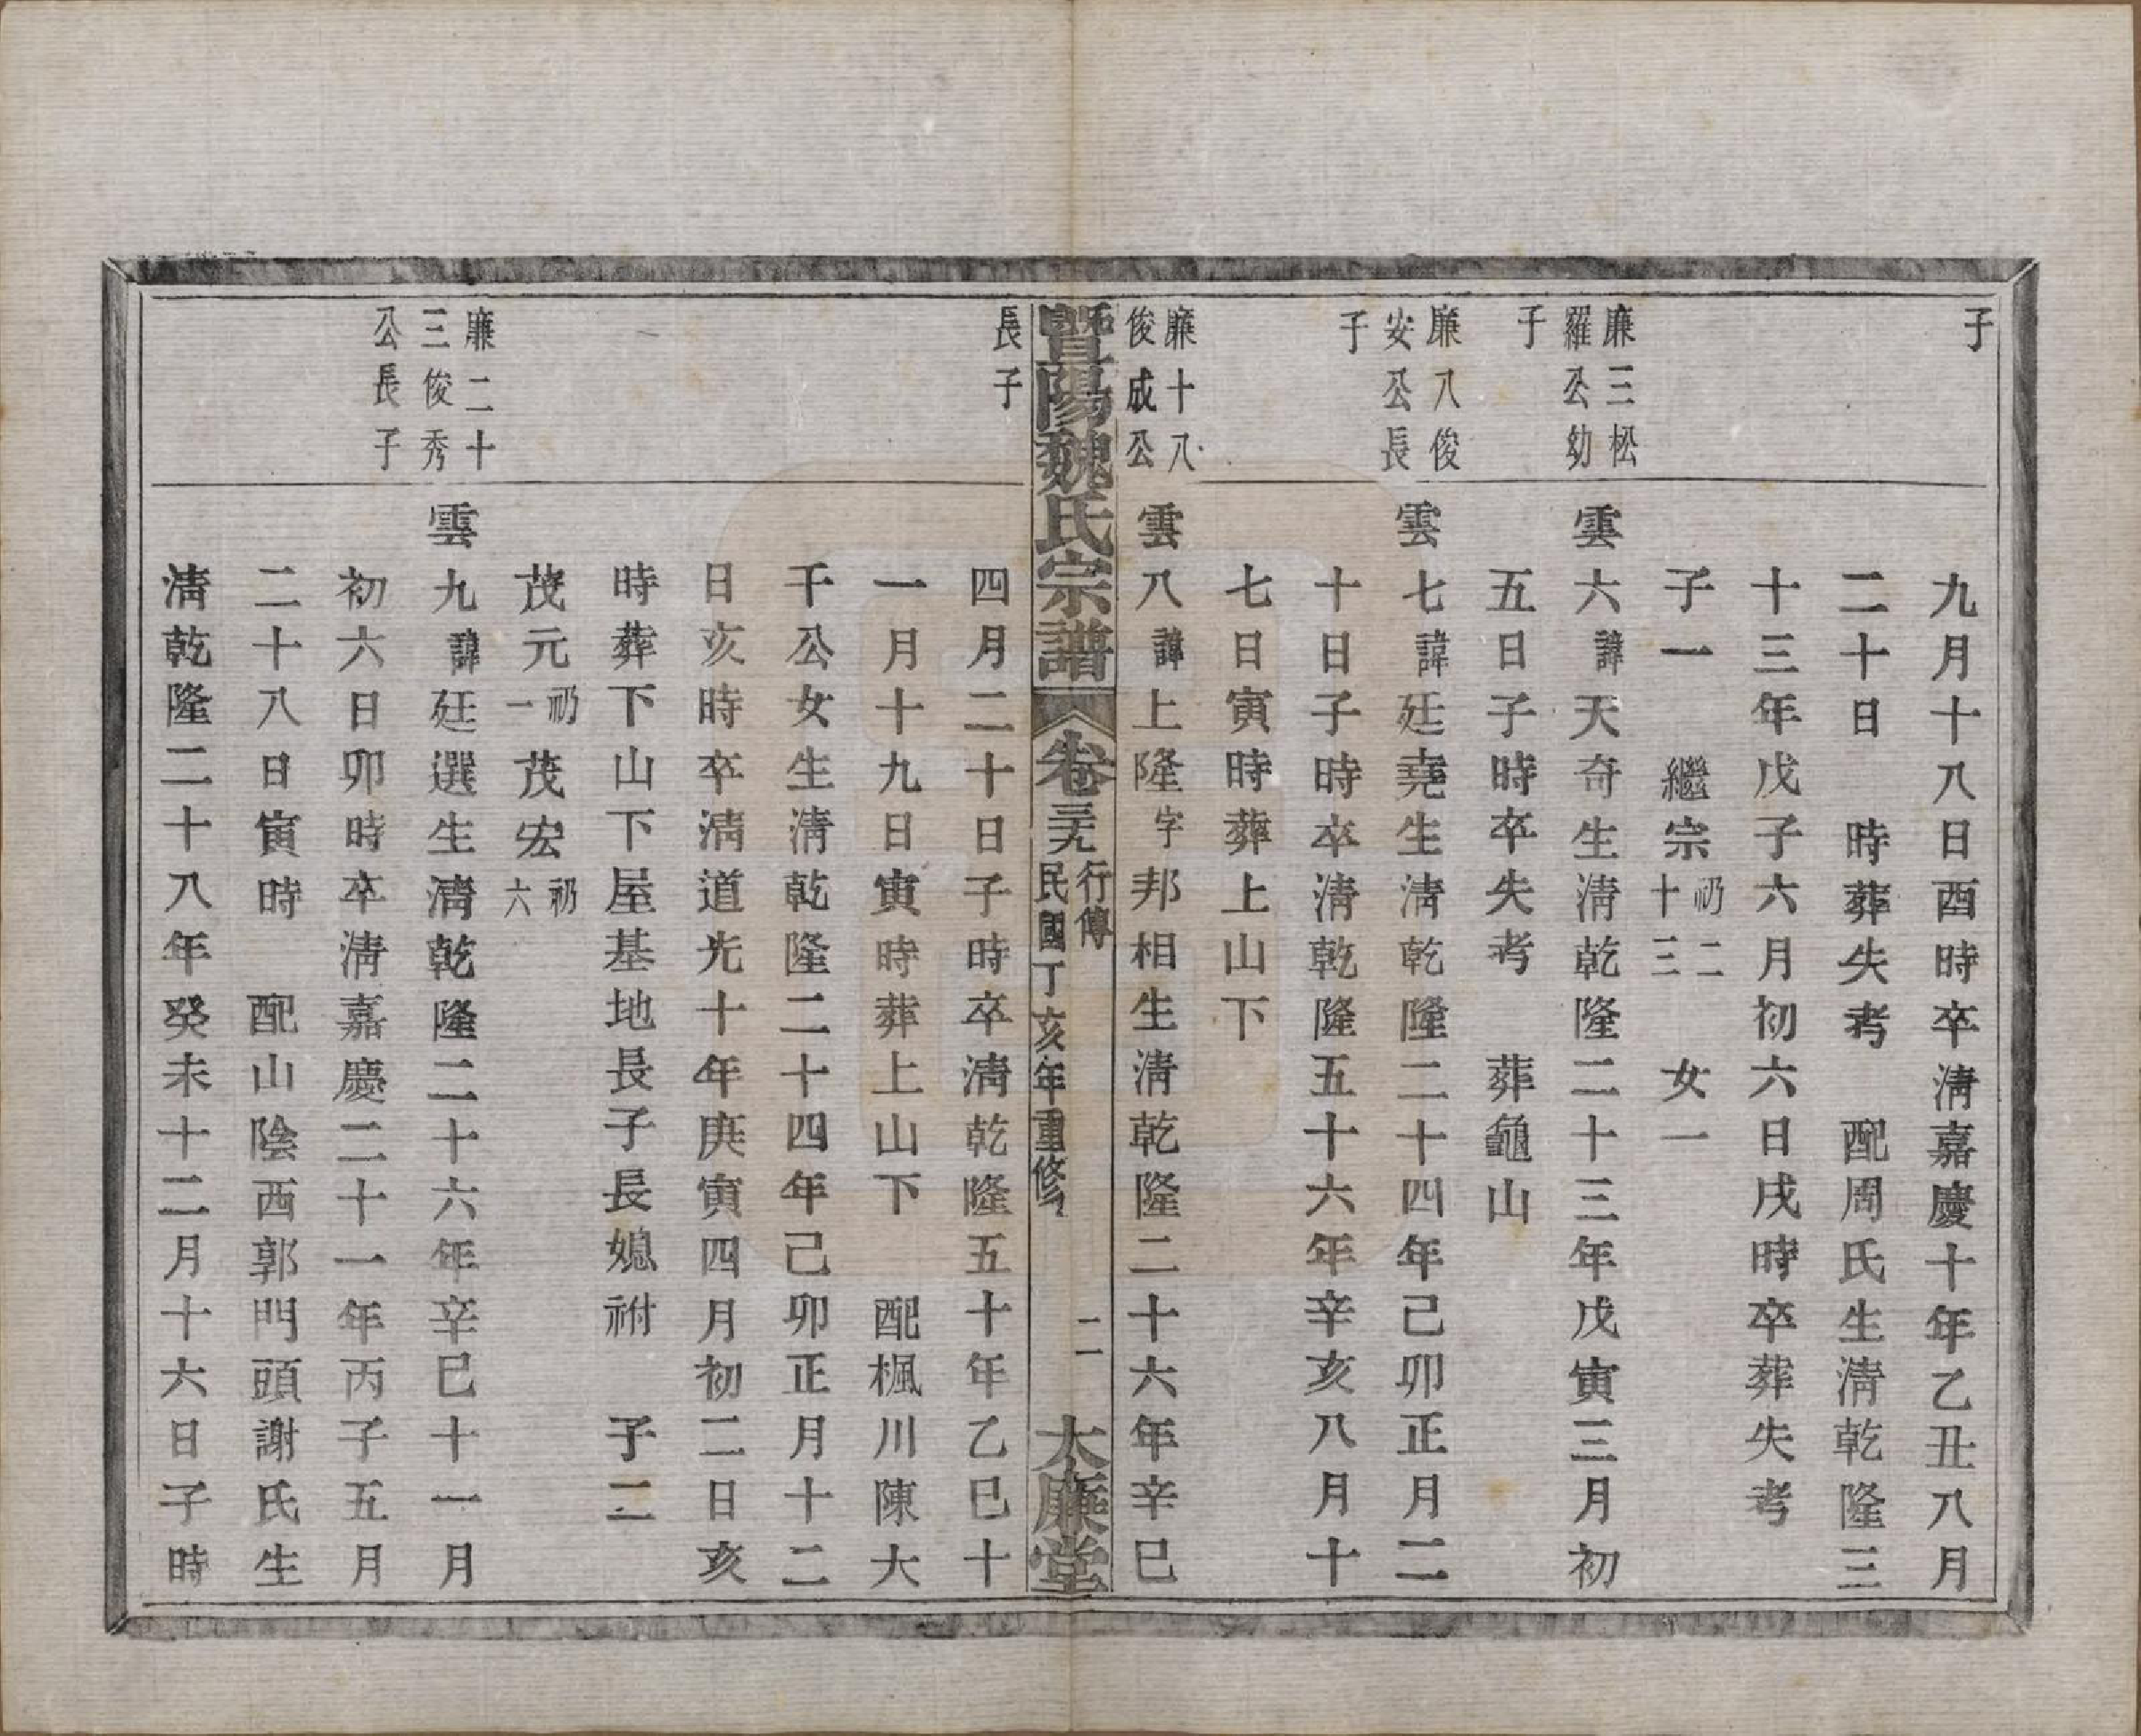 子
九月十八日酉時卒淸嘉慶十年乙丑八月
二十日 時葬失考 配周氏生淸乾隆三
十三年戊子六月初六日戌時卒葬失考
子一 繼宗礽二十三 女一
廉三松
羅公幼
子
雲六諱天奇生淸乾隆二十三年戊寅三月初
五日子時卒失考 葬龜山
廉八俊
安公長
子
雲七諱廷堯生淸乾隆二十四年己卯正月二
十日子時卒淸乾隆五十六年辛亥八月十
七日寅時葬上山下
廉十八
俊成公
雲八諱上隆字邦相生淸乾隆二十六年辛巳
暨陽魏氏宗譜 卷三九 行傳 民國丁亥年重修 二 大廉堂
長子
四月二十日子時卒淸乾隆五十年乙巳十
一月十九日寅時葬上山下 配楓川陳大
千公女生淸乾隆二十四年己卯正月十二
日亥時卒淸道光十年庚寅四月初二日亥
時葬下山下屋基地長子長媳祔 子二
茂元礽一茂宏礽六
廉二十
三俊秀
公長子
雲九諱廷選生淸乾隆二十六年辛巳十一月
初六日卯時卒淸嘉慶二十一年丙子五月
二十八日寅時 配山陰西郭門頭謝氏生
淸乾隆二十八年癸未十二月十六日子時